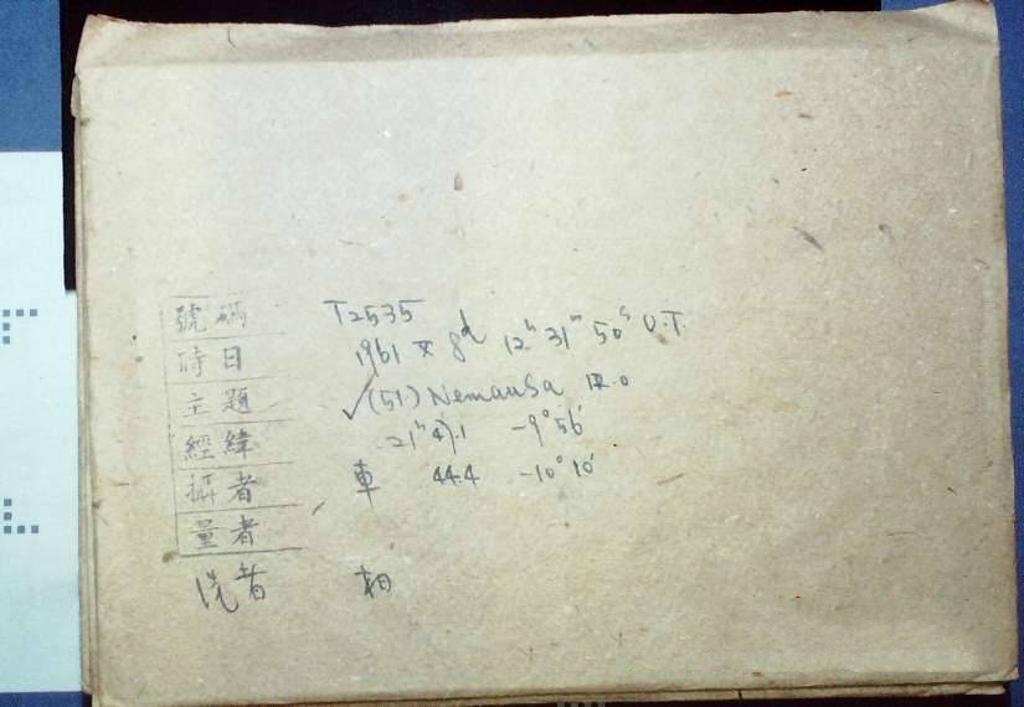 號碼 T2535
時日 1961 X 8d 12h 31m 50s U.T.
主題 ✓(51) Nemausa 12.0
經緯 21h 47.1 -9°56'
攝者 車 44.4 -10°10'
量者
洗者 相